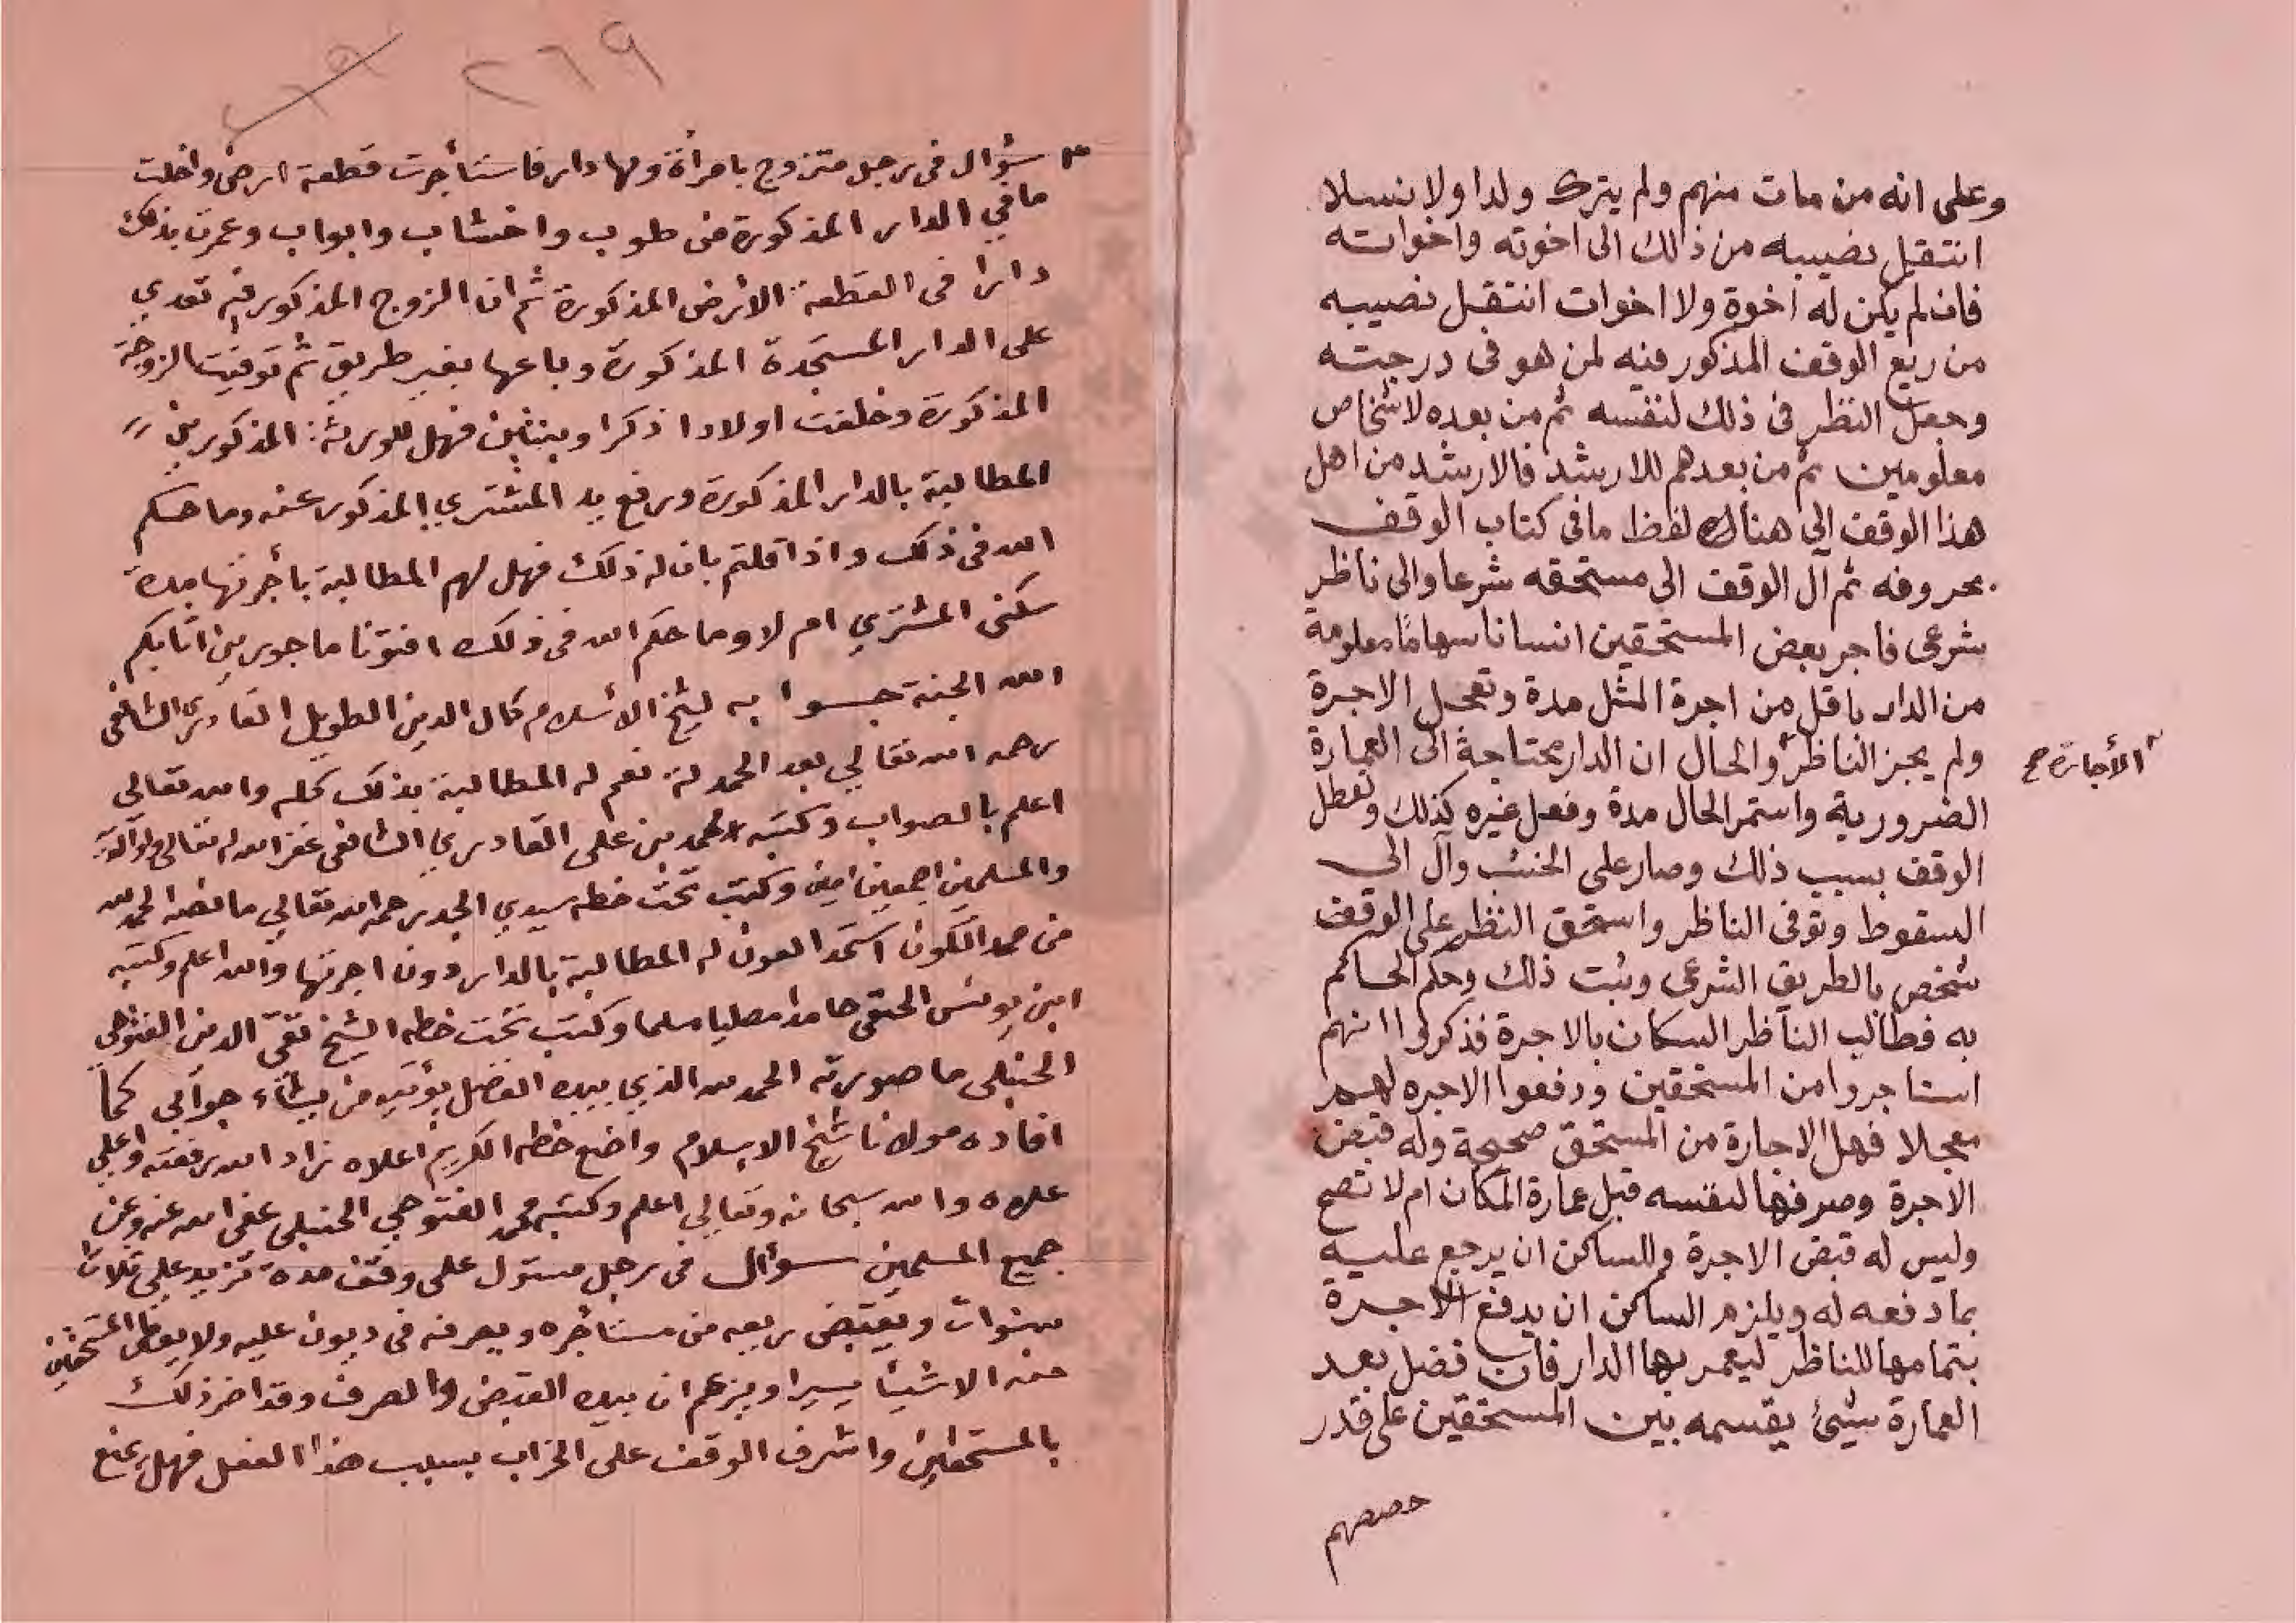 وعلى انه من مات منهم ولم يترك ولدا ولا نسلا
انتقل نصيبه من ذلك الى اخوته واخواته
فان لم يكن له اخوة ولا اخوات انتقل نصيبه
من ريع الوقف المذكور فيه لمن هو فى درجته
وجعل النظر فى ذلك لنفسه ثم من بعده لاشخاص
معلومين ثم من بعدهم للارشد فالارشد من اهل
هذا الوقف الى هناك لفظ مافى كتاب الوقف
بحروفه ثم آل الوقف الى مستحقه شرعا والى ناظر
شرعى فاجر بعض المستحقين انسانا سهاما معلومة
من الدار باقل من اجرة المثل مدة وتعجل الاجرة
ولم يجز الناظر والحال ان الدار محتاجة الى العمارة
الأجارة صح
الضرورية واستمر الحال مدة وفعل غيره كذلك وتعطل
الوقف بسبب ذلك وصار على الخشب وآل الى
السقوط وتوفى الناظر واستحق النظر على الوقف
شخص بالطريق الشرعى وثبت ذلك وحكم الحاكم
به فطالب الناظر السكان بالاجرة فذكروا انهم
استاجروا من المستحقين ودفعوا الاجره لهم
معجلا فهل الاجارة من المستحق صحيحة وله قبض
الاجرة وصرفها لنفسه قبل عمارة المكان ام لا تصح
وليس له قبض الاجرة وللساكن ان يرجع عليه
بما دفعه له ويلزم الساكن ان يدفع الاجرة
بتمامها للناظر ليعمر بها الدار فان فضل بعد
العمارة شيئ يقسمه بين المستحقين على قدر
حصصهم
٢٦٩
سؤال فى رجل متزوج بامرأة ولها دار فاستأجرت قطعة ارض واخلت
مافي الدار المذكورة من طوب واخشاب وابواب وعمرت بذلك
دارا فى القطعة الارض المذكورة ثم ان الزوج المذكور فيه تعدي
على الدار المستجدة المذكورة وباعها بغير طريق ثم توفيت الزوجة
المذكورة وخلفت اولادا ذكرا وبنتين فهل للورثة المذكورين
المطالبة بالدار المذكورة ورفع يد المشتري المذكور عنه وما حكم
الله فى ذلك واذا قلتم بان له ذلك فهل لهم المطالبة بأجرتها مدة
سكنى المشتري ام لا وما حكم الله فى ذلك افتونا ماجورين اثابكم
الله الجنة جوابه لشيخ الأسلام كمال الدين الطويل القادري الشافعى
رحمه الله تعالي بعد الحمدلة نعم له المطالبة بذلك كله والله تعالى
اعلم بالصواب وكتبه محمد بن على القادري الشافعى غفر الله له تعالى ولوالديه
والمسلمين اجمعين امين وكتب تحت خطه سيدي الجد رحمه الله تعالي ما نصه الحمد لله
من ممد الكون استمد العون له المطالبة بالدار دون اجرتها والله اعلم وكتبه
ابن يونس الحنفى حامدا مصليا مسلما وكتب تحت خطه الشيخ تقى الدين الفتوحي
الحنبلى ما صورته الحمد لله الذي بيده الفضل يؤتيه من يشاء جوابي كما
افاده مولانا شيخ الاسلام واضع خطه الكريم اعلاه زاد الله رفعته وأعلي
علاه والله سبحانه وتعالي اعلم وكتبه محمد الفتوحي الحنبلى عفى الله عنه وعن
جميع المسلمين سؤال فى رجل مستول على وقف مدة تزيد على ثلاث
سنوات ويقبض ريعه من مستأجره ويصرفه فى ديون عليه ولا يعطى المستحقين
منه الا شيئا يسيرا ويزعم ان بيده القبض والصرف وقد اضر ذلك
بالمستحقين واشرف الوقف على الخراب بسبب هذا الفعل فهل يمنع